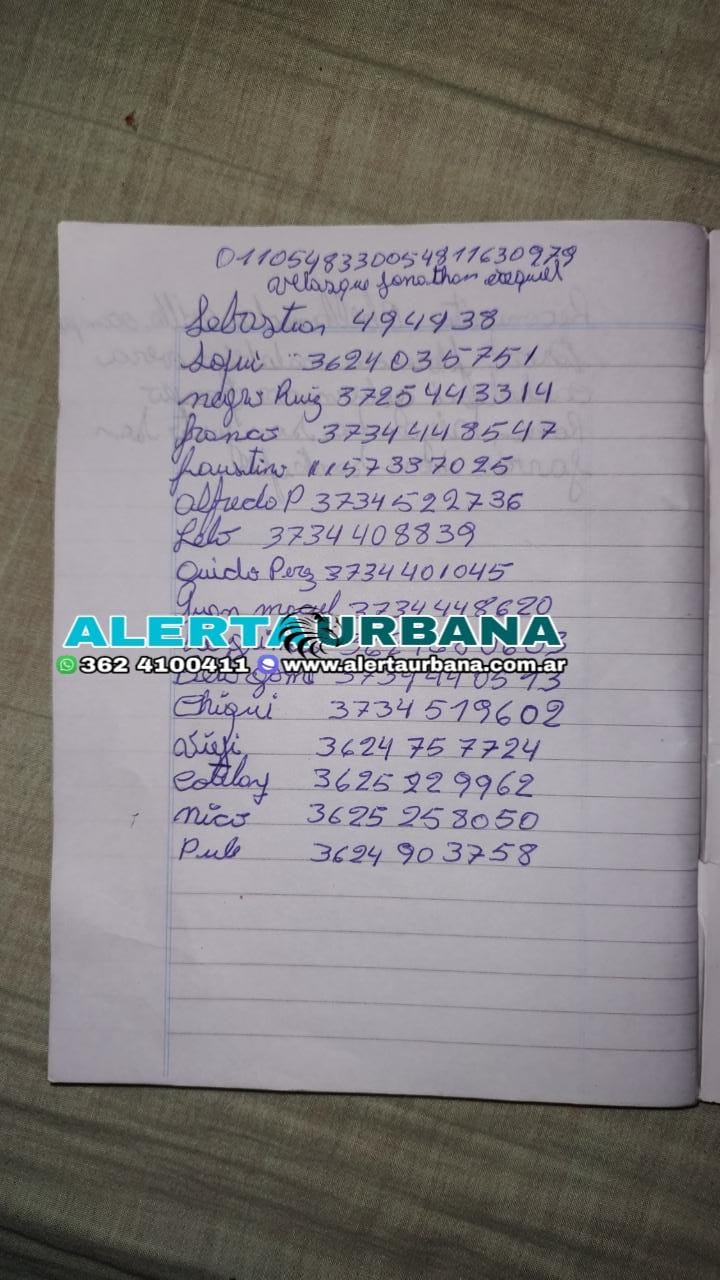 0110548330054811630979
Velazque Jonathan ezequiel
Sebastian 494938
3624035751
negro Ruiz 3725443314
franco 3734448547
faustino 1157337025
alfredo P 3734522736
Lelo 3734408839
Guido Perez 3734401045
Juan miguel 3734448620
ALERTA URBANA
362 4100411 www.alertaurbana.com.ar
Chiqui 3734519602
3624757724
3625229962
nico 3625258050
3624903758